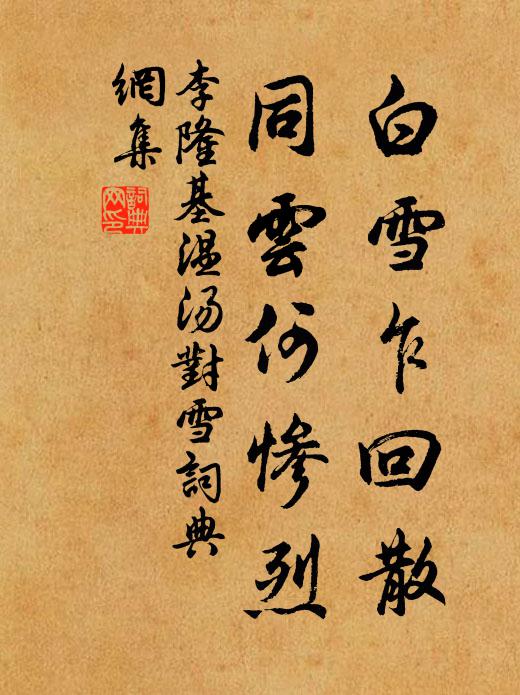 白雪乍回散
同雲何慘烈
李隆基溫汤對雪詞典
網集
詞典网印